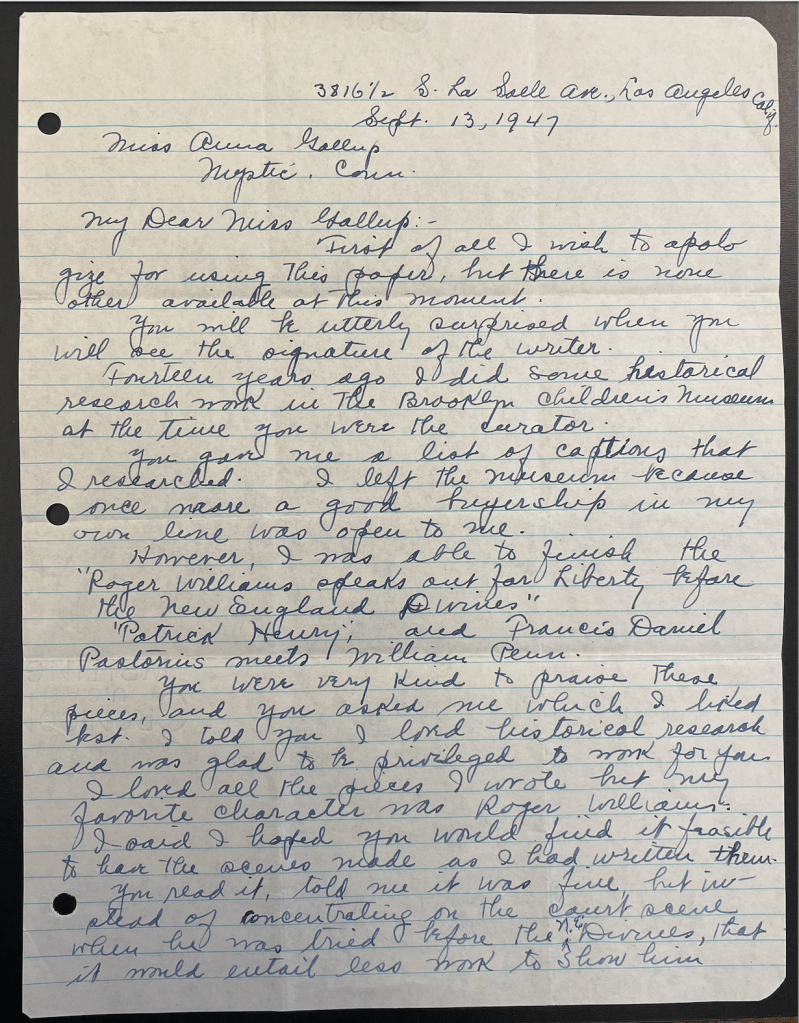 3816½ S. La Salle Ave., Los Angeles Calif.
Sept. 13, 1947
Miss Anna Gallup
Mystic. Conn.
My Dear Miss Gallup:-
First of all I wish to apolo
gize for using this paper, but there is none
other available at this moment.
You will be utterly surprised when you
will see the signature of the writer.
Fourteen years ago I did some historical
research work in the Brooklyn Children's Museum
at the time you were the curator.
You gave me a list of captions that
I researched. I left the museum because
once more a good buyership in my
own line was open to me.
However, I was able to finish the
"Roger Williams speaks out for Liberty before
the New England Divines"
"Patrick Henry", and Francis Daniel
Pastorius meets William Penn.
You were very kind to praise these
pieces, and you asked me which I liked
best. I told you I loved historical research
and was glad to be privileged to work for you.
I loved all the pieces I wrote but my
favorite character was Roger Williams.
I said I hoped you would find it feasible
to have the scenes made as I had written them.
You read it, told me it was fine, but in-
stead of concentrating on the court scene
when he was tried before the N.E. Divines, that
it would entail less work to show him